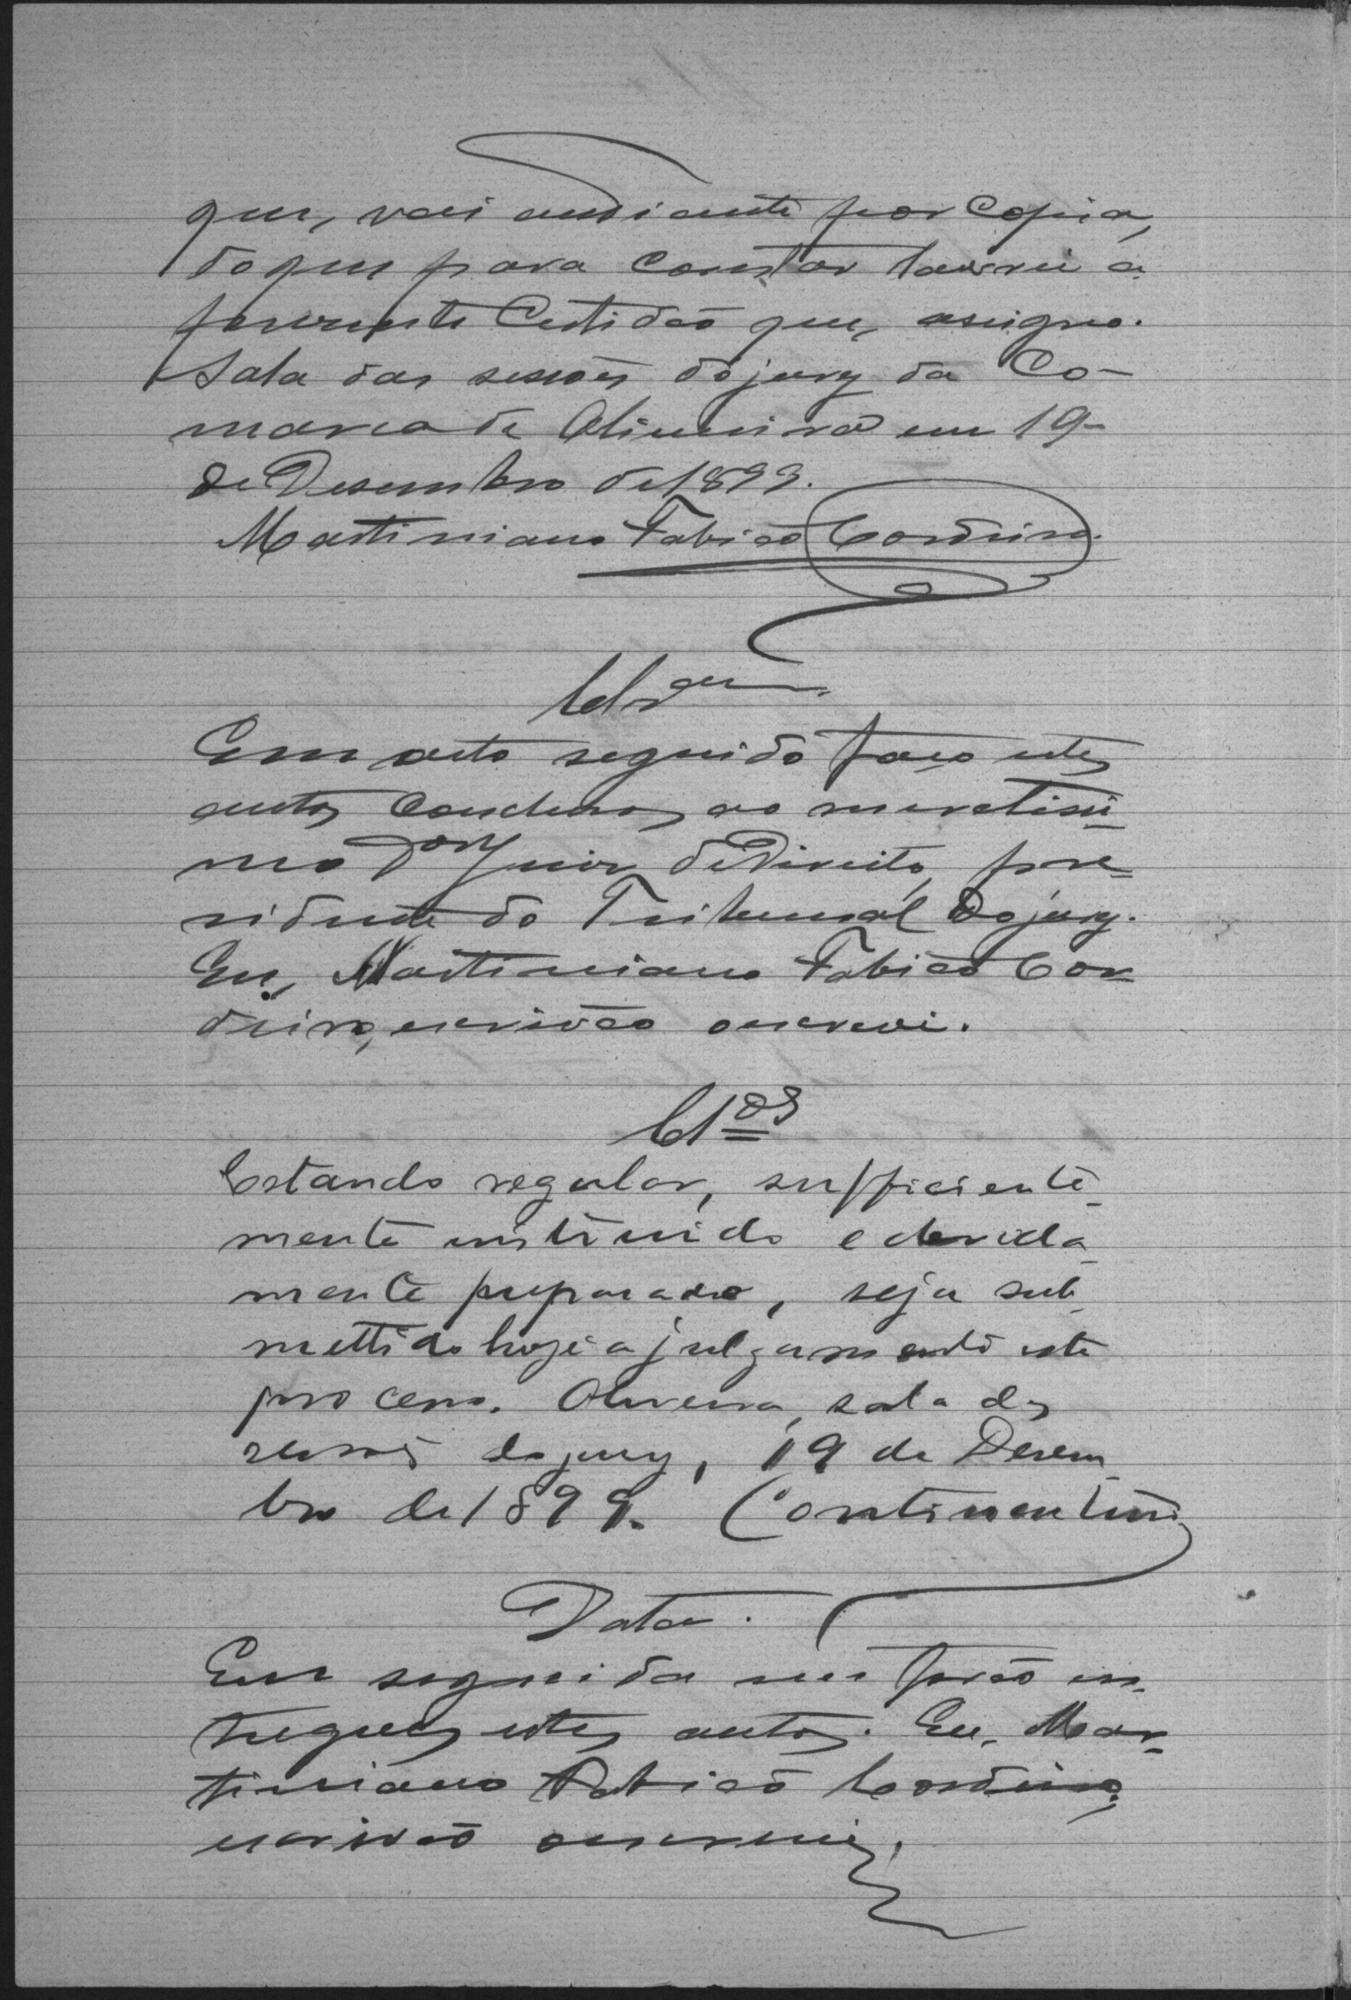 que, vai andiante por Copia,
do que para constar lavrei a
presente Certidão que, assigno.
Sala das sessões do jury da Co-
marca de Oliveira em 19
de Desembro de 1899.
Martiniano Fabião Cordeiro.
Em acto seguido faço estes
autos Conclusos ao meretissi-
mo Dor Juiz de Direito, pre-
sidente do Tribunal do jury.
Eu, Martiniano Fabião Cor-
deiro, escrivão o escrevi.
Clos
Estando regular, sufficiente-
mente instruido e devida-
mente preparado, seja sub-
mettido hoje a julgamento este
processo. Oliveira, sala das
sessões do jury, 19 de Dezem-
bro de 1899. Continentino
Data.
Em seguida me forão en-
tregues estes autos. Eu, Mar-
tiniano Fabião Cordeiro,
escrivão o escrevi.